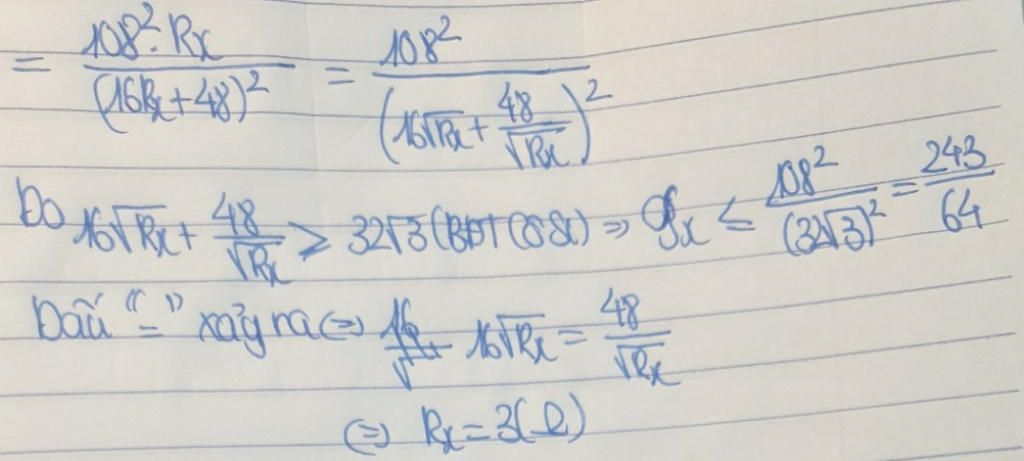 = \frac{108^2 \cdot Rx}{(16Rx + 48)^2} = \frac{108^2}{\left(16\sqrt{Rx} + \frac{48}{\sqrt{Rx}}\right)^2}
Do 16\sqrt{Rx} + \frac{48}{\sqrt{Rx}} \geq 32\sqrt{3} (BĐT CôSi) => \mathcal{P}x \leq \frac{108^2}{(32\sqrt{3})^2} = \frac{243}{64}
Dấu "=" xảy ra <=> 16\sqrt{Rx} = \frac{48}{\sqrt{Rx}}
<=> Rx = 3(Ω)